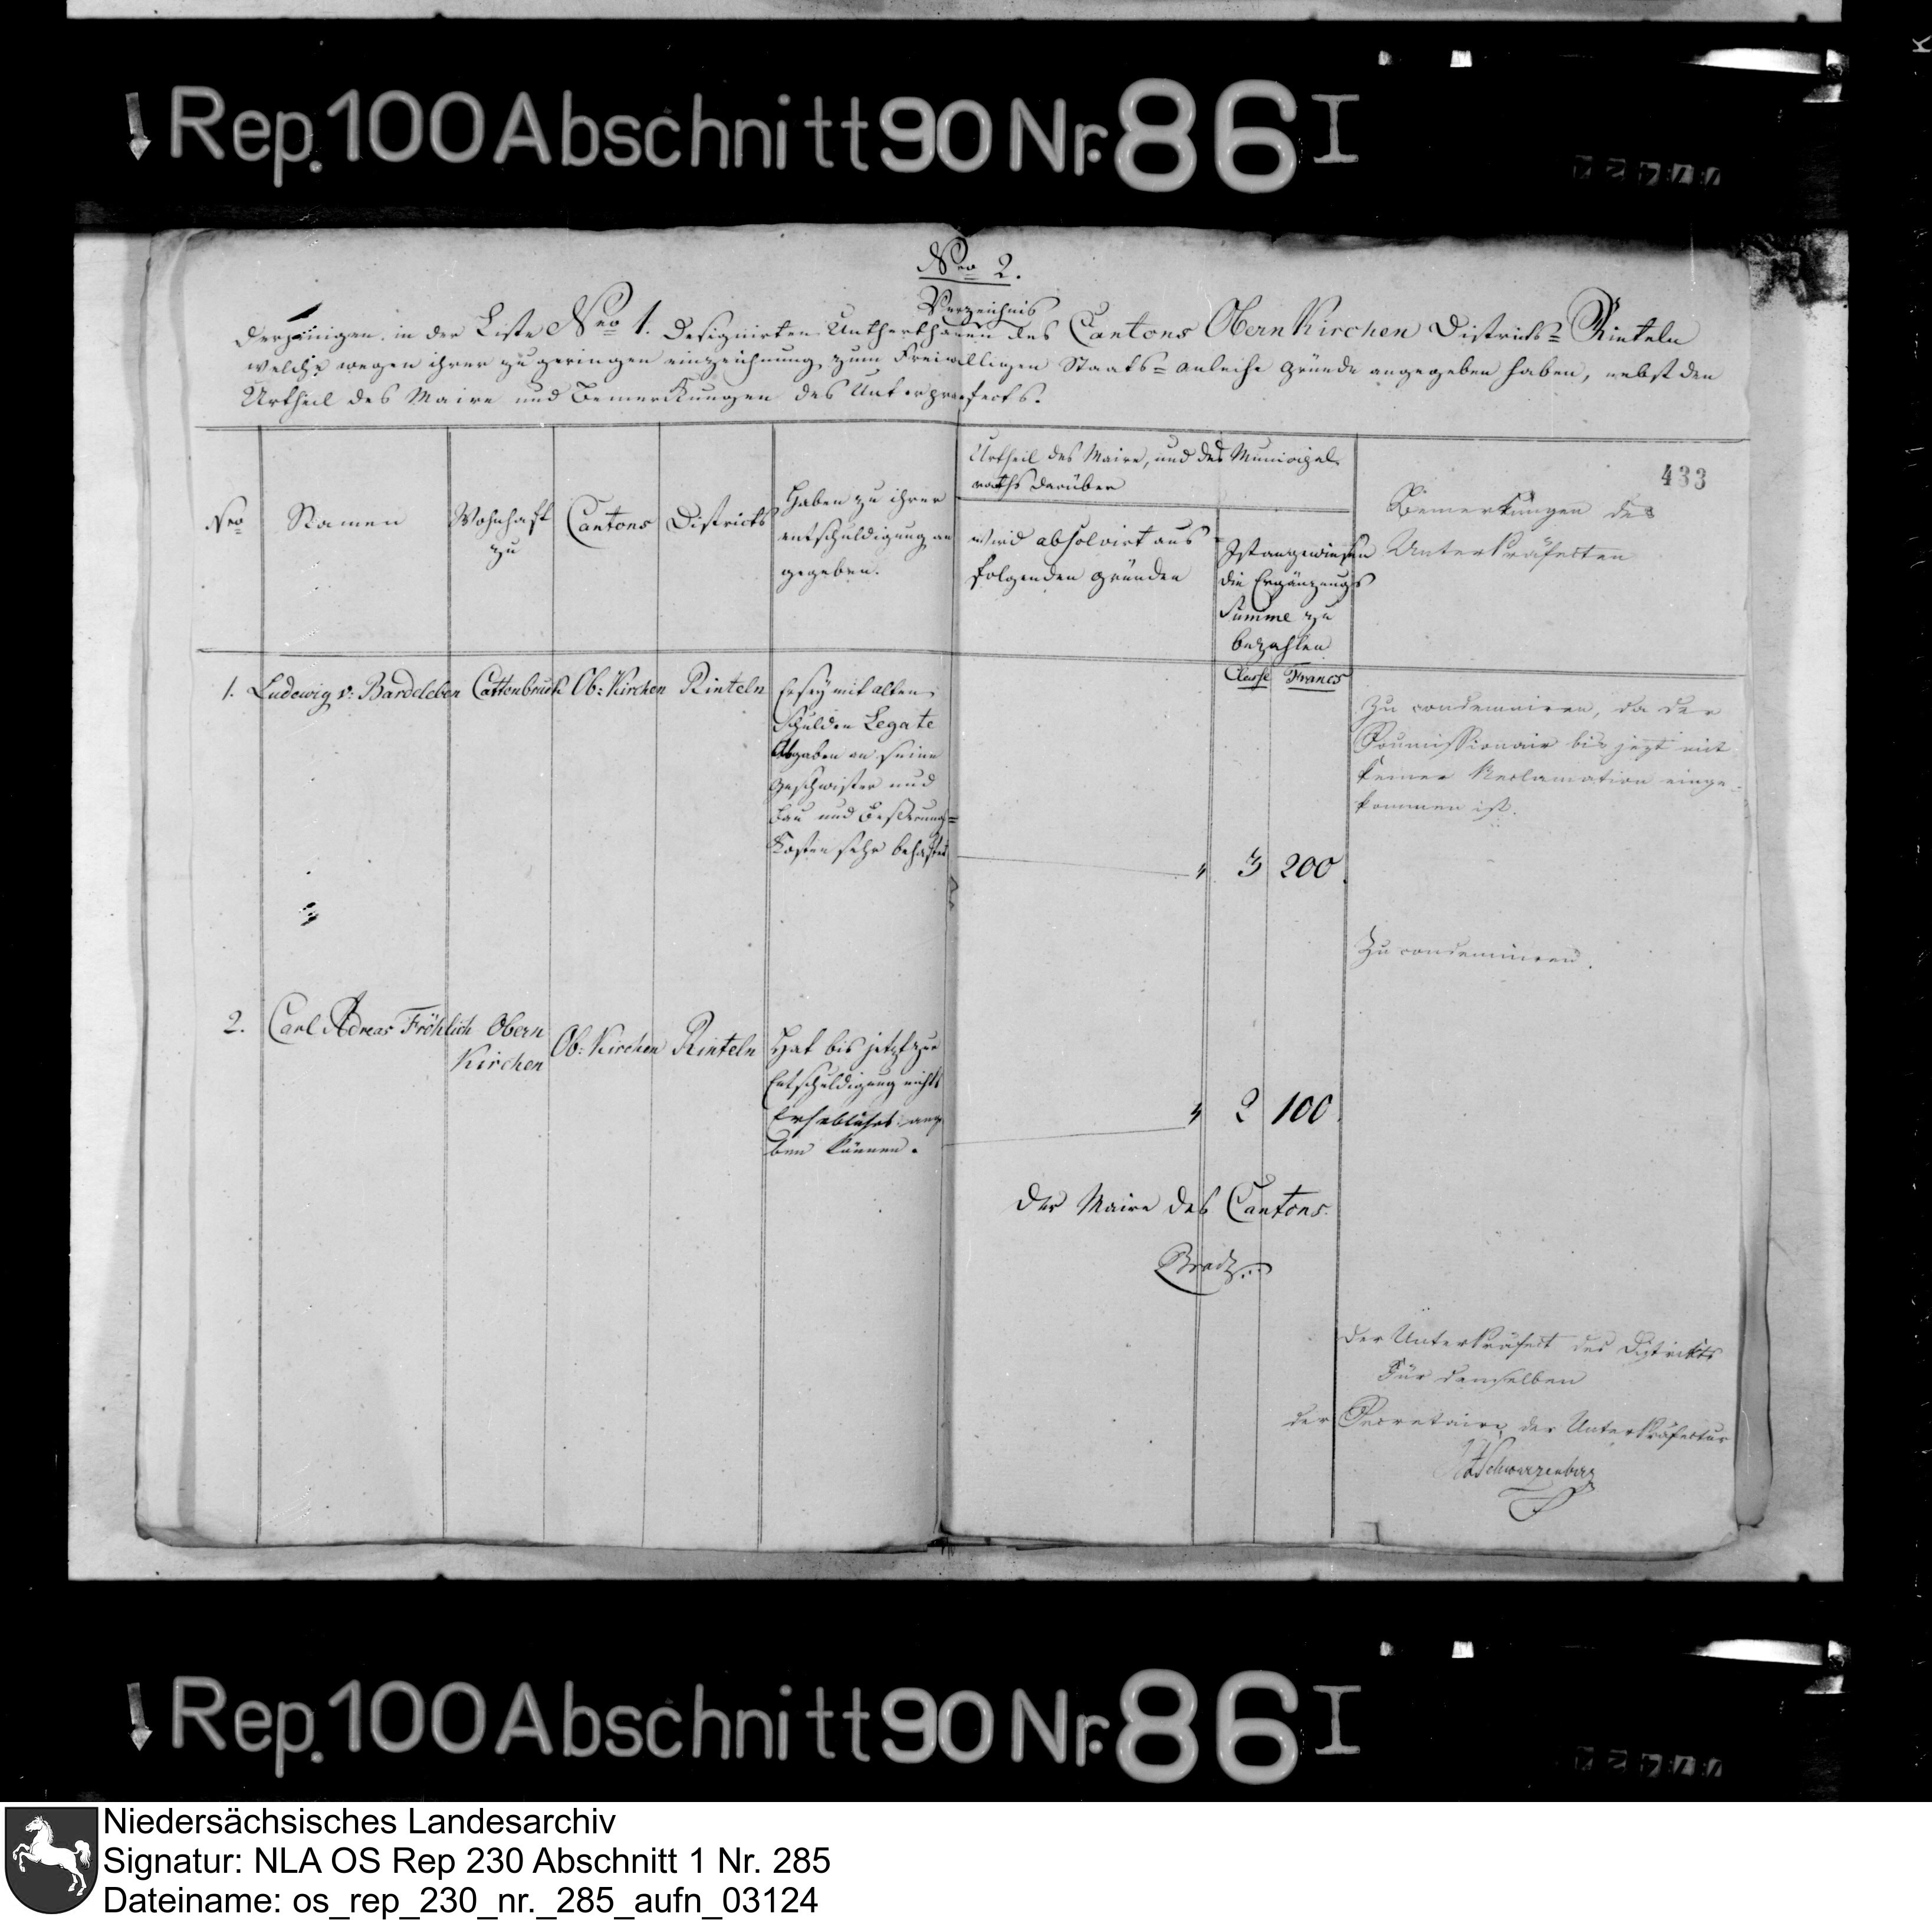 Rep. 100 Abschnitt 90 Nr. 86 I
Nro 2.
Verzeichnis
derjenigen in der Liste Nro 1. designirten Unterthanen des Cantons Obern Kirchen Districts= Rinteln
welche wegen ihrer zu geringen einzeichnung zum Freiwilligen Staats= anleihe gründe angegeben haben, nebst den
Urtheil des Maire und Bemerkungen des Unterpraefects.
433
Nro
Namen
Wohnhaft
zu
Cantons
Districts
Haben zu ihrer
entschuldigung an
gegeben.
Urtheil des Maire, und des Municipal
raths darüber
wird absolvirt aus
folgenden gründen
Ist angewiesen
die Ergänzungs
Summe zu
bezahlen
Classe Francs
Bemerkungen des
UnterPräfecten
1. Ludewig v: Bardeleben Cattenbruch Ob: Kirchen Rinteln
Er sey mit alten
Schulden Legate
Abgaben an seine
Geschwister und
Bau und Besserungs=
Kosten sehr behaftet
" 3 200.
Zu condemniren, da der
Soumissionair bis jezt mit
keiner Reclamation einge-
kommen ist.
2. Carl Adreas Fröhlich Obern
Kirchen
Ob: Kirchen Rinteln
Hat bis jetzt zur
Entschuldigung nichts
Erhebliches ange
ben können.
" 2 100.
Zu condemniren.
Der Maire des Cantons.
Der UnterPräfect des Districts
Für denselben
der Secretaire der UnterPräfectur
Schwarzenberg
Rep. 100 Abschnitt 90 Nr. 86 I
Niedersächsisches Landesarchiv
Signatur: NLA OS Rep 230 Abschnitt 1 Nr. 285
Dateiname: os_rep_230_nr._285_aufn_03124